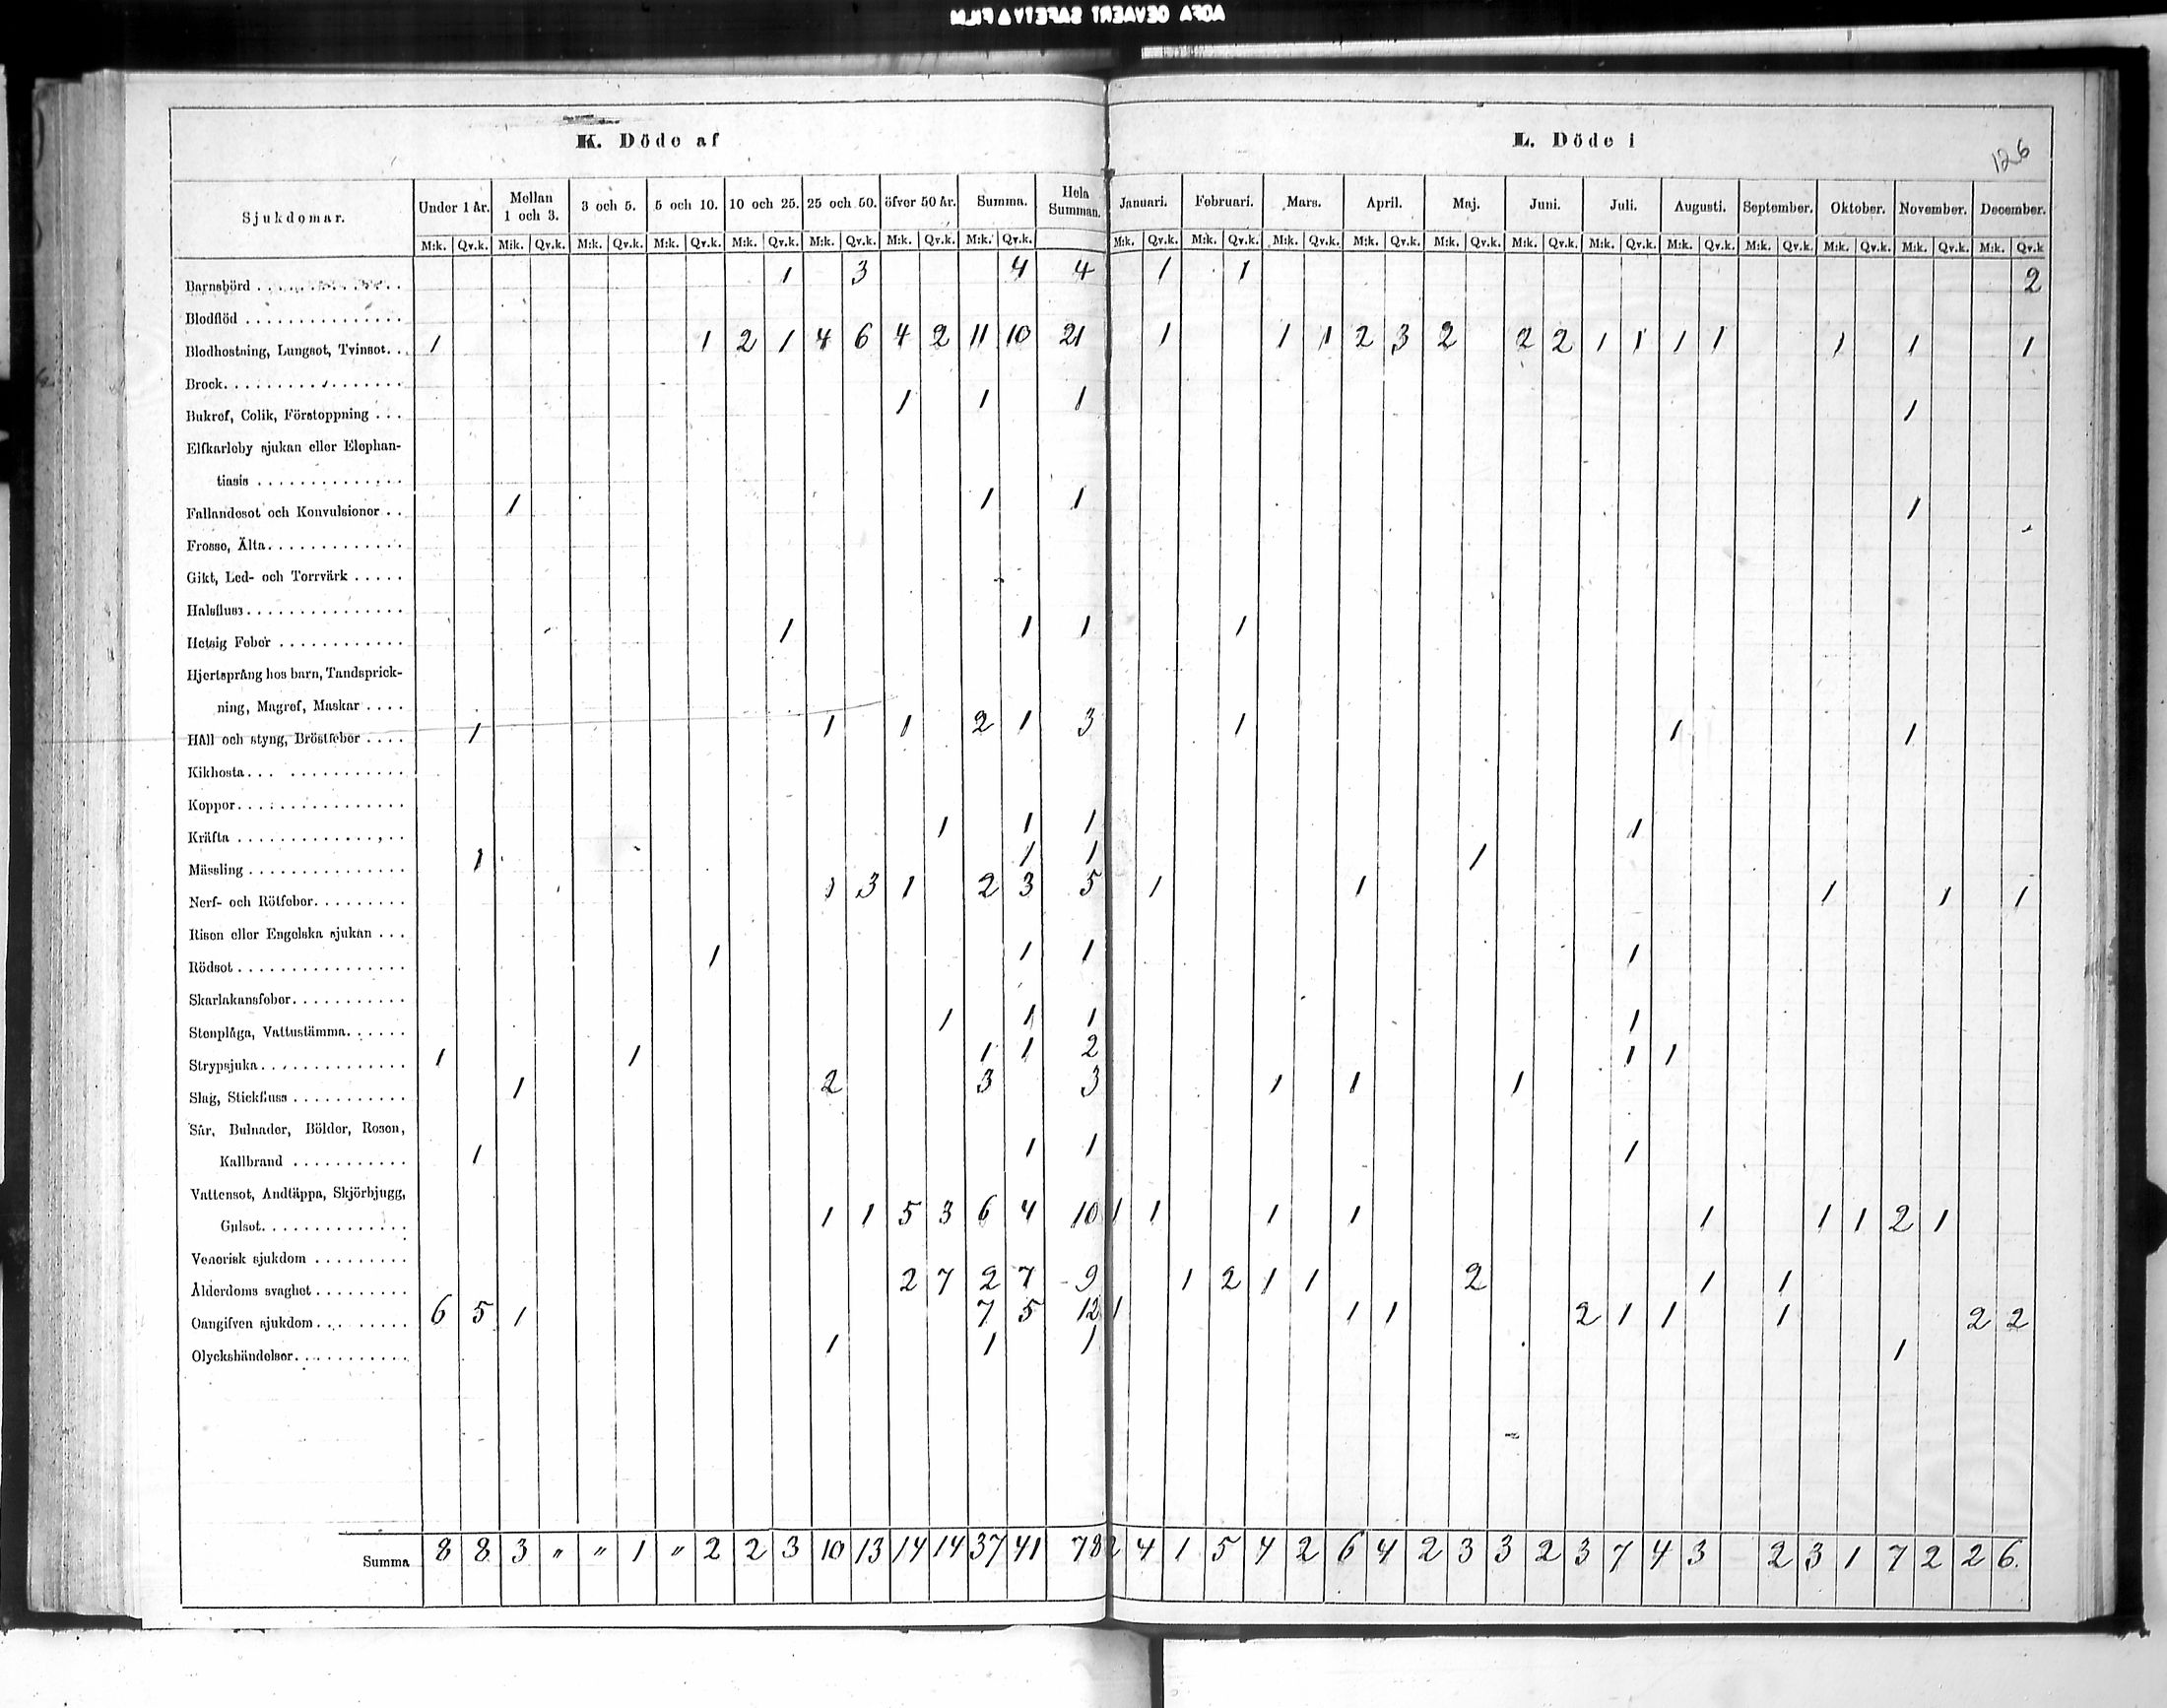 AGFA GEVAERT SAFETY FILM
K. Döde af
L. Döde i
126
Sjukdomar. Under 1 år. Mellan 1 och 3. 3 och 5. 5 och 10. 10 och 25. 25 och 50. öfver 50 år. Summa. Hela Summan. Januari. Februari. Mars. April. Maj. Juni. Juli. Augusti. September. Oktober. November. December.
M:k. Qv.k. M:k. Qv.k. M:k. Qv.k. M:k. Qv.k. M:k. Qv.k. M:k. Qv.k. M:k. Qv.k. M:k. Qv.k. M:k. Qv.k. M:k. Qv.k. M:k. Qv.k. M:k. Qv.k. M:k. Qv.k. M:k. Qv.k. M:k. Qv.k. M:k. Qv.k. M:k. Qv.k. M:k. Qv.k. M:k. Qv.k. M:k. Qv.k
Barnsbörd . . . . . . . . . . . . . 1 3 4 4 1 1 2
Blodflöd . . . . . . . . . . . . . . .
Blodhostning, Lungsot, Tvinsot. . . 1 1 2 1 4 6 4 2 11 10 21 1 1 1 2 3 2 2 2 1 1 1 1 1 1 1
Brock. . . . . . . . . . . . . . . . .
Bukref, Colik, Förstoppning . . . 1 1 1 1
Elfkarleby sjukan eller Elephan-
tiasis . . . . . . . . . . . . . .
Fallandesot och Konvulsioner . . 1 1 1 1
Frossa, Älta. . . . . . . . . . . . .
Gikt, Led- och Torrvärk . . . . .
Halsfluss . . . . . . . . . . . . . . .
Hetsig Feber . . . . . . . . . . . . 1 1 1 1
Hjertsprång hos barn, Tandsprick-
ning, Magref, Maskar . . . .
Håll och styng, Bröstfeber . . . . 1 1 1 2 1 3 1 1 1
Kikhosta. . . . . . . . . . . . . .
Koppor. . . . . . . . . . . . . . . .
Kräfta . . . . . . . . . . . . . . . . 1 1 1 1
Mässling . . . . . . . . . . . . . . . 1 1 1 1
Nerf- och Rötfeber. . . . . . . . . 1 3 1 2 3 5 1 1 1 1 1
Risen eller Engelska sjukan . . .
Rödsot. . . . . . . . . . . . . . . . 1 1 1 1
Skarlakansfeber. . . . . . . . . . .
Stenplåga, Vattustämma. . . . . . 1 1 1 1
Strypsjuka. . . . . . . . . . . . . . 1 1 1 1 2 1 1
Slag, Stickfluss . . . . . . . . . . . 1 2 3 3 1 1 1
Sår, Bulnader, Bölder, Rosen,
Kallbrand . . . . . . . . . . . 1 1 1 1
Vattensot, Andtäppa, Skjörbjugg,
Gulsot. . . . . . . . . . . . . . 1 1 5 3 6 4 10 1 1 1 1 1 1 1 2 1
Venerisk sjukdom . . . . . . . . .
Ålderdoms svaghet . . . . . . . . . 2 7 2 7 9 1 2 1 1 2 1 1
Oangifven sjukdom . . . . . . . . . 6 5 1 7 5 12 1 1 1 2 1 1 1 2 2
Olyckshändelser. . . . . . . . . . . 1 1 1 1
Summa 8 8 3 " " 1 " 2 2 3 10 13 14 14 37 41 78 2 4 1 5 4 2 6 4 2 3 3 2 3 7 4 3 2 3 1 7 2 2 6.